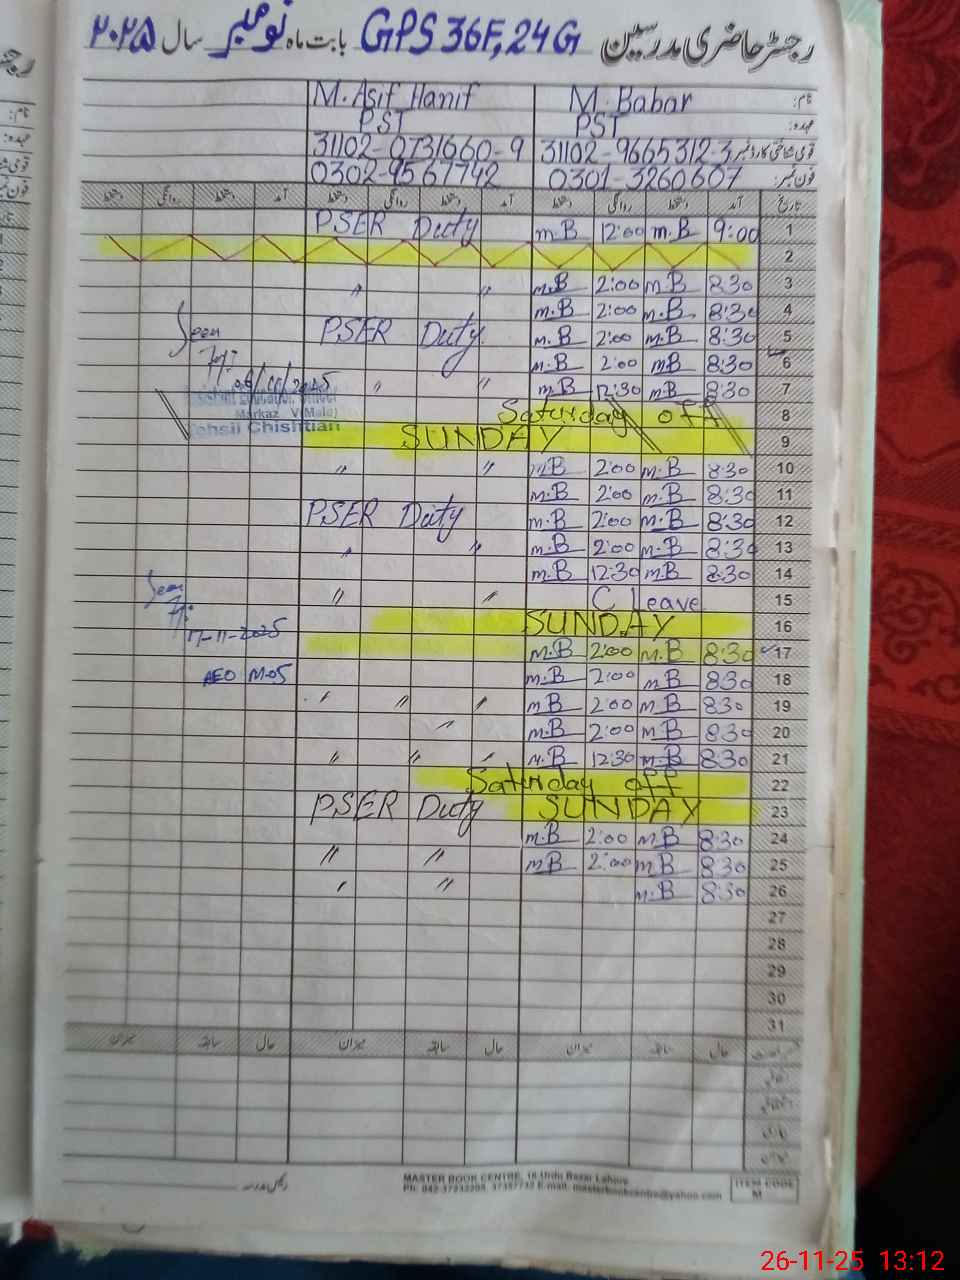 رجسٹر حاضری مدرسین GPS 36F, 24G بابت ماہ نومبر سال ۲۰۲۵
نام: M. Babar M. Asif Hanif
عہدہ: PST PST
قومی شناختی کارڈ نمبر 31102-9665312-3 31102-0731660-9
فون نمبر: 0301-3260607 0302-9567742
تاریخ آمد دستخط روانگی دستخط آمد دستخط روانگی دستخط آمد دستخط روانگی دستخط
1 9:00 m.B 12:00 m.B PSER Duty
2
3 8:30 m.B 2:00 m.B " "
4 8:30 m.B. 2:00 m.B
5 8:30 m.B 2:00 m.B PSER Duty Seen
6 8:30 mB 2:00 m.B
7 8:30 m.B 12:30 m.B " "
8 Saturday off
Markaz V(Male)
9 SUNDAY
Tehsil Chishtian
10 8:30 m.B 2:00 m.B " "
11 8:30 m.B 2:00 m.B
12 8:30 m.B 2:00 m.B PSER Duty
13 8:30 m.B 2:00 m.B " "
14 8:30 m.B 12:30 m.B Seen
15 C leave " "
16 SUNDAY 17-11-2025
17 8:30 m.B 2:00 m.B
18 8:30 m.B 2:00 m.B AEO M-05
19 8:30 m.B 2:00 m.B " " "
20 8:30 m.B 2:00 m.B "
21 8:30 m.B 12:30 m.B " " "
22 Saturday off
23 SUNDAY PSER Duty
24 8:30 m.B 2:00 m.B
25 8:30 m.B 2:00 m.B " "
26 8:30 m.B " "
27
28
29
30
31
حال سابقہ میزان حال سابقہ میزان حال سابقہ میزان
MASTER BOOK CENTRE, 16 Urdu Bazar Lahore
E-mail. masterbookcentre@yahoo.com
ITEM CODE
M
26-11-25 13:12